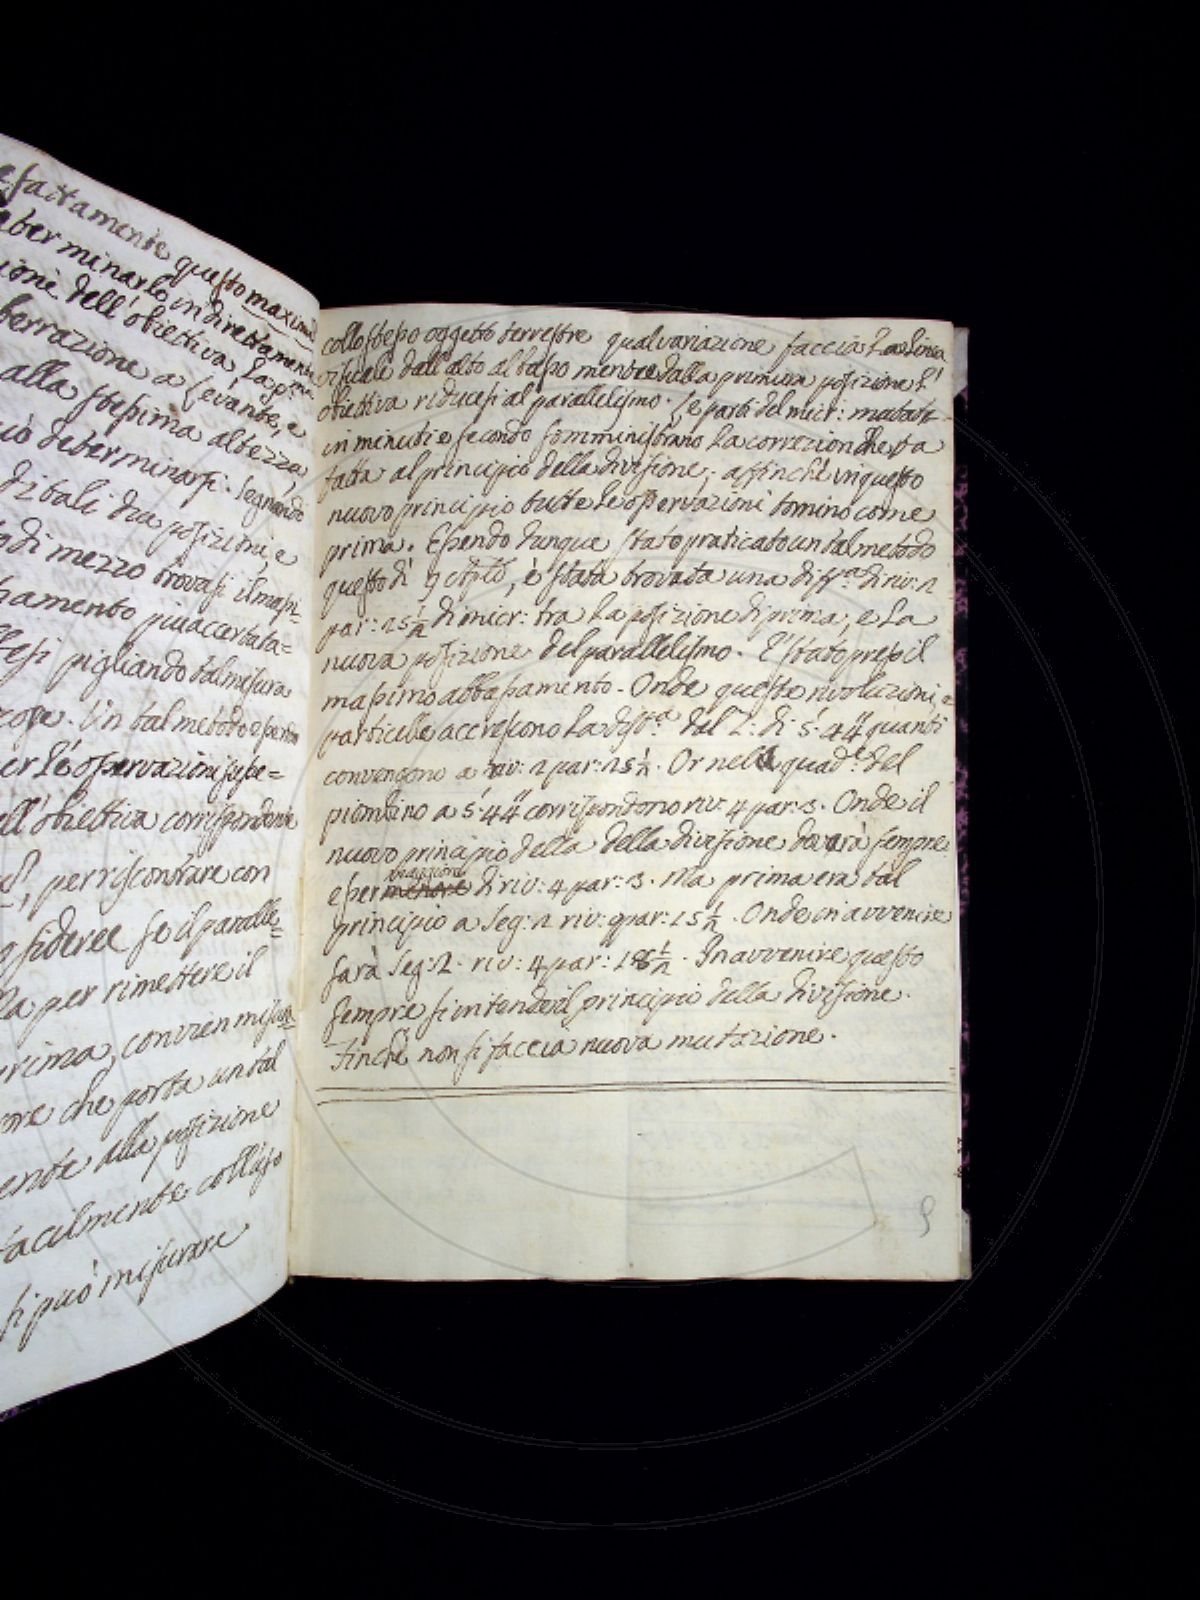 fattamente questo maximu
determinarlo indirettamente
ione dell'obiettiva la p.ma
berrazione a Levante, e
alla stessima altezza,
ciò determinarsi. Segnando
di tali due posizioni, e
di mezzo trovasi il mas
samento piu accertata=
pigliando tal misura
Un tal metodo
er l'osservazioni
all'obiettiva corrispondente
per riscontrare con
sideree se il paralle=
la per rimettere il
prima, convien misu
ore che porta un tal
ente alla posizione
facilmente collaso
si può misurare
collo stesso oggetto terrestre qual variazione faccia la Linea
visuale dall'alto al basso mentre dalla primiera posizione l'
obiettiva riducesi al parallelismo. Le parti del micr: mutate
in minuti e secondi somministrano la correzion che va
fatta al principio della divisione; affinchè in questo
nuovo principio tutte le osservazioni tornino come
prima. Essendo dunque stato praticato un tal metodo
questo dì 9 , è stata trovata una diff.a di riv: 2
par: 25 1/2 di micr: tra la posizione di prima, e la
nuova posizione del parallelismo. È stato preso il
massimo abbassamento. Onde queste rivoluzioni, e
particelle accrescono la dist.a dal Z. di 5'. 44" quanti
convengono a riv: 2 par: 25 1/2. Or nel quad.e del
piombino a 5'. 44" corrispondono riv: 4 par: 3. Onde il
nuovo principio della della divisione dovrà sempre
esser maggiore di riv: 4 par: 3. Ma prima era tal
principio a Seg: 2 riv: 9 par: 15 1/2. Onde in avvenire
sarà Seg: 2. riv: 4 par: 18 1/2. In avvenire questo
sempre si intende il principio della divisione.
Finchè non si faccia nuova mutazione.
9